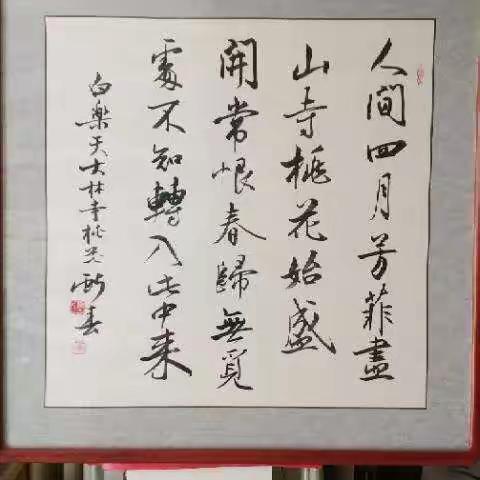 人間四月芳菲盡
山寺桃花始盛
開常恨春歸無覓
處不知轉入此中来
白樂天大林寺桃花
春